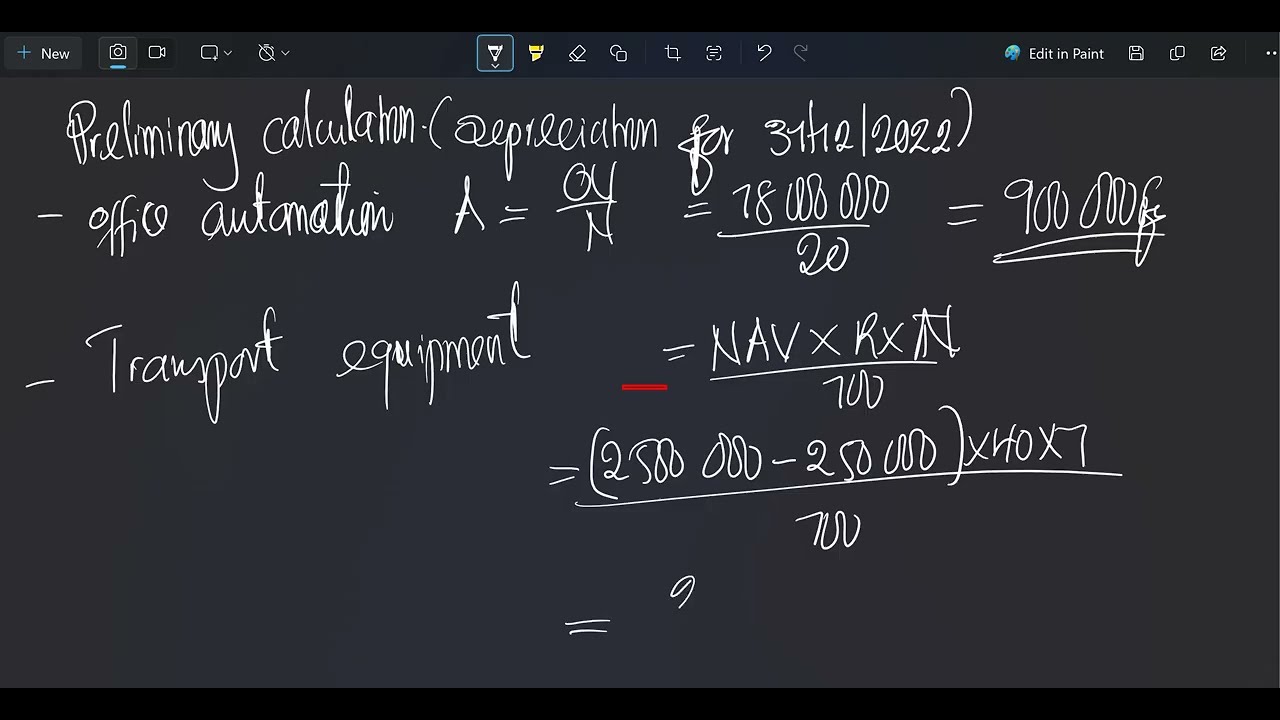 New
Edit in Paint
Preliminary calculation. (Depreciation for 31/12/2022)
- office automation A = OV/N = 18 000 000/20 = 900 000 frs
- Transport equipment = NAV x R x N/100
= (2 500 000 - 250 000) x 40 x 1/100
= 9